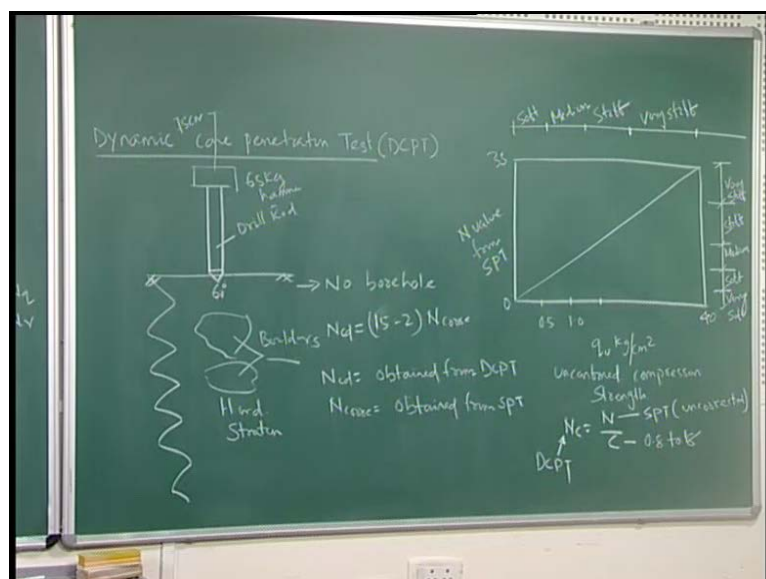 Dynamic Cone penetration Test (DCPT)
75cm
65kg
hammer
Drill Rod
60°
→ No borehole
Boulders
Hard
Stratum
Ncd = (1.5-2) Ncorre
Ncd = obtained from DCPT
Ncorre = obtained from SPT
Soft Medium Stiff Very stiff
35
N value
from
SPT
0
0.5 1.0
40
Very
Stiff
Stiff
Medium
Soft
Very
Soft
qu kg/cm2
unconfined compression
Strength
Nc = N/C
SPT (uncorrected)
DCPT